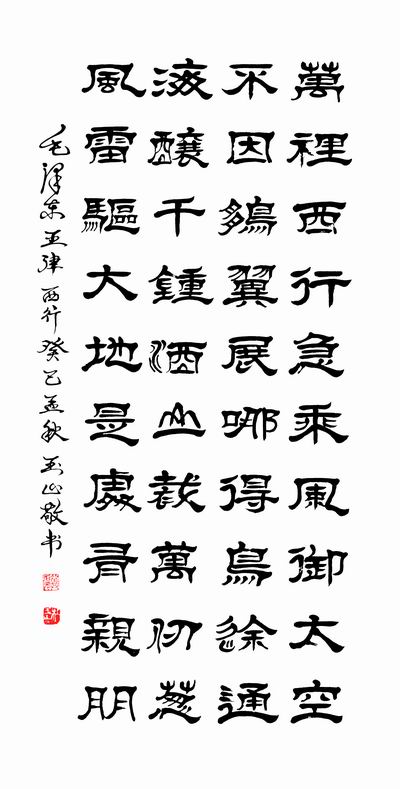 萬裡西行急乘風御太空
不因鵬翼展哪得鳥途通
海釀千鍾酒山裁萬仞葱
風雷驅大地是處有親朋
毛澤东五律西行癸巳孟秋玉山敬书